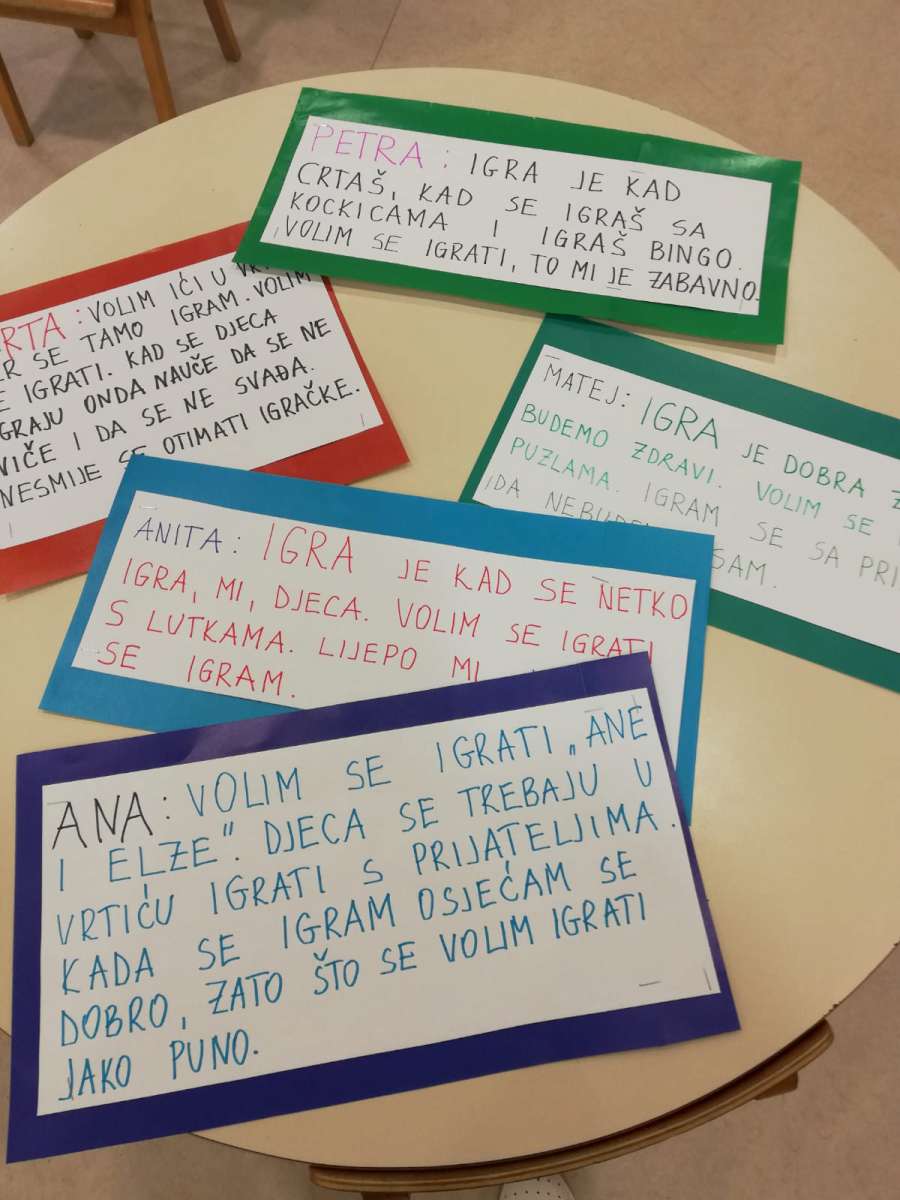 PETRA: IGRA JE KAD
CRTAŠ, KAD SE IGRAŠ SA
KOCKICAMA I IGRAŠ BINGO.
VOLIM SE IGRATI, TO MI JE ZABAVNO.
RTA: VOLIM IĆI U
ER SE TAMO IGRAM. VOLIM
E IGRATI. KAD SE DJECA
GRAJU ONDA NAUČE DA SE NE
VIČE I DA SE NE SVAĐA.
NESMIJE SE OTIMATI IGRAČKE.
MATEJ: IGRA JE DOBRA
BUDEMO ZDRAVI. VOLIM SE
PUZLAMA. IGRAM SE SA PRI
IDA SAM.
ANITA: IGRA JE KAD SE NETKO
IGRA, MI, DJECA. VOLIM SE IGRATI
S LUTKAMA. LIJEPO MI
SE IGRAM.
ANA: VOLIM SE IGRATI „ANE
I ELZE". DJECA SE TREBAJU U
VRTIĆU IGRATI S PRIJATELJIMA.
KADA SE IGRAM OSJEĆAM SE
DOBRO, ZATO ŠTO SE VOLIM IGRATI
JAKO PUNO.